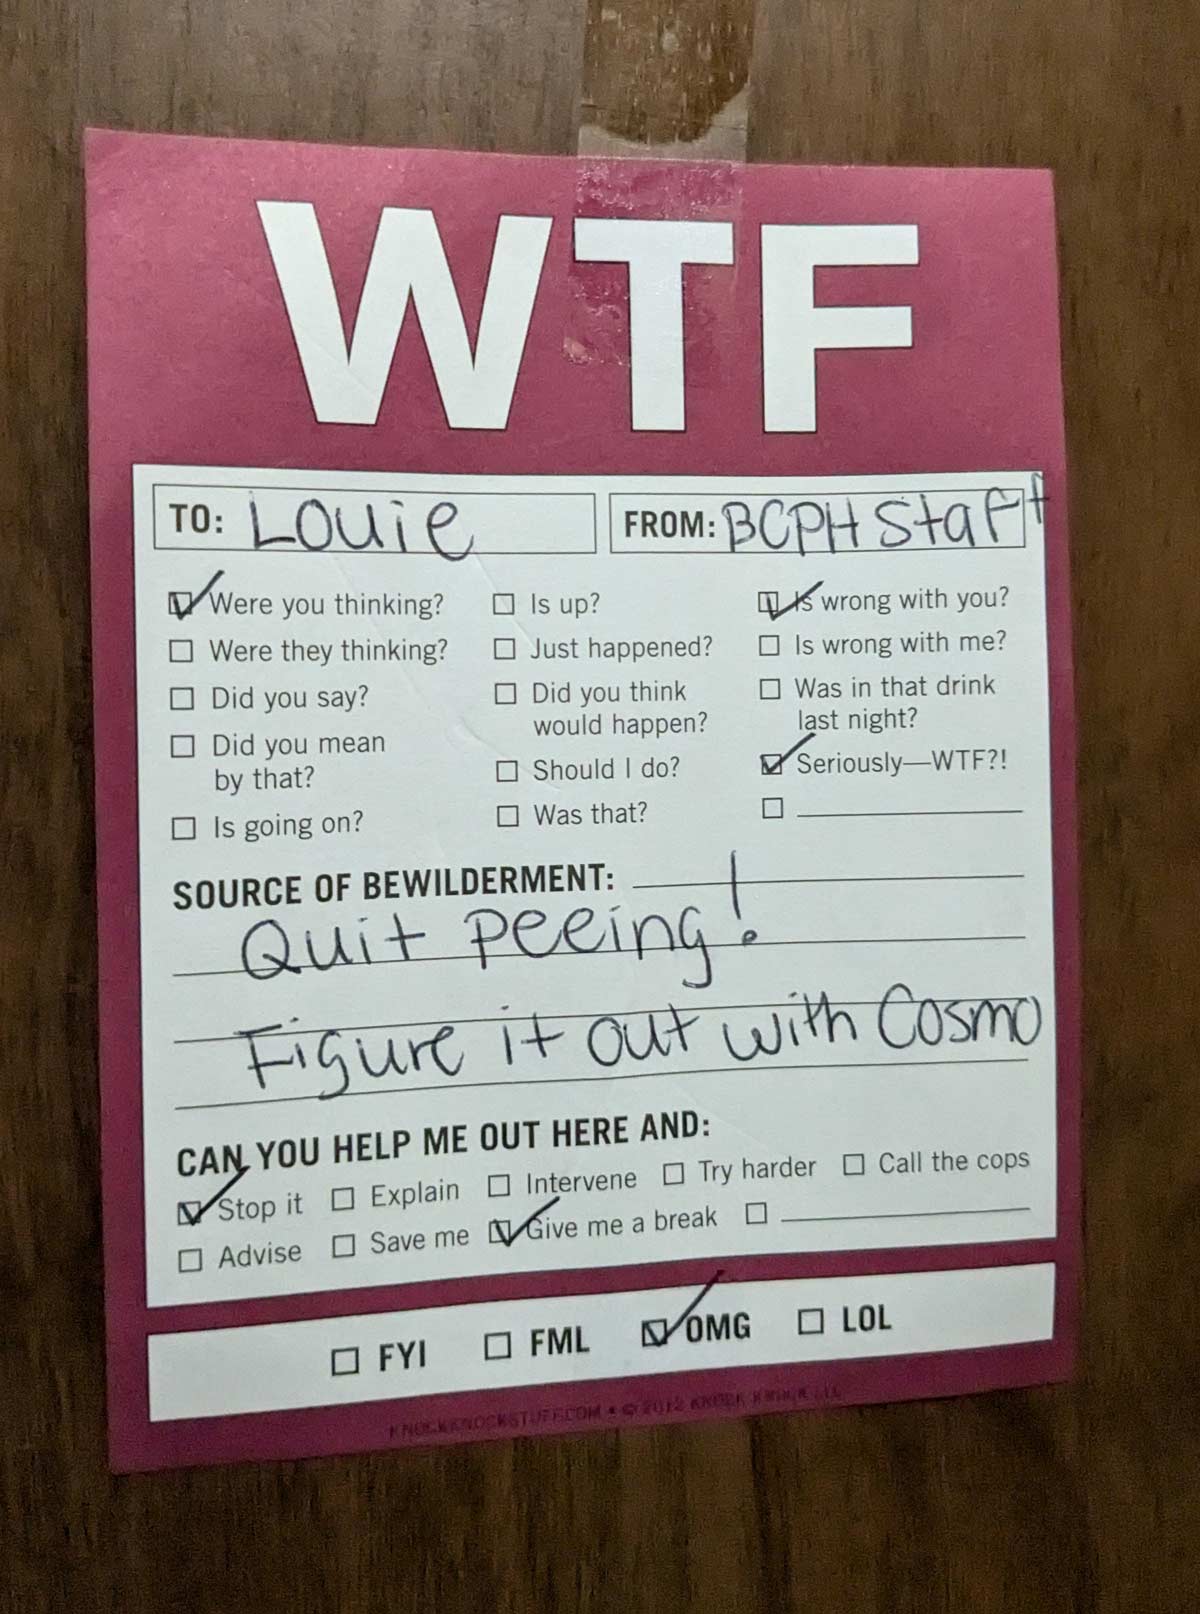 WTF
TO: Louie FROM: BCPH Staff
Were you thinking? Is up? Is wrong with you?
Were they thinking? Just happened? Is wrong with me?
Did you say? Did you think would happen? Was in that drink last night?
Did you mean by that? Should I do? Seriously—WTF?!
Is going on? Was that?
SOURCE OF BEWILDERMENT:
Quit peeing!
Figure it out with Cosmo
CAN YOU HELP ME OUT HERE AND:
Stop it Explain Intervene Try harder Call the cops
Advise Save me Give me a break
FYI FML OMG LOL
KNOCKKNOCKSTUFF.COM • © 2012 KNOCK KNOCK LLC